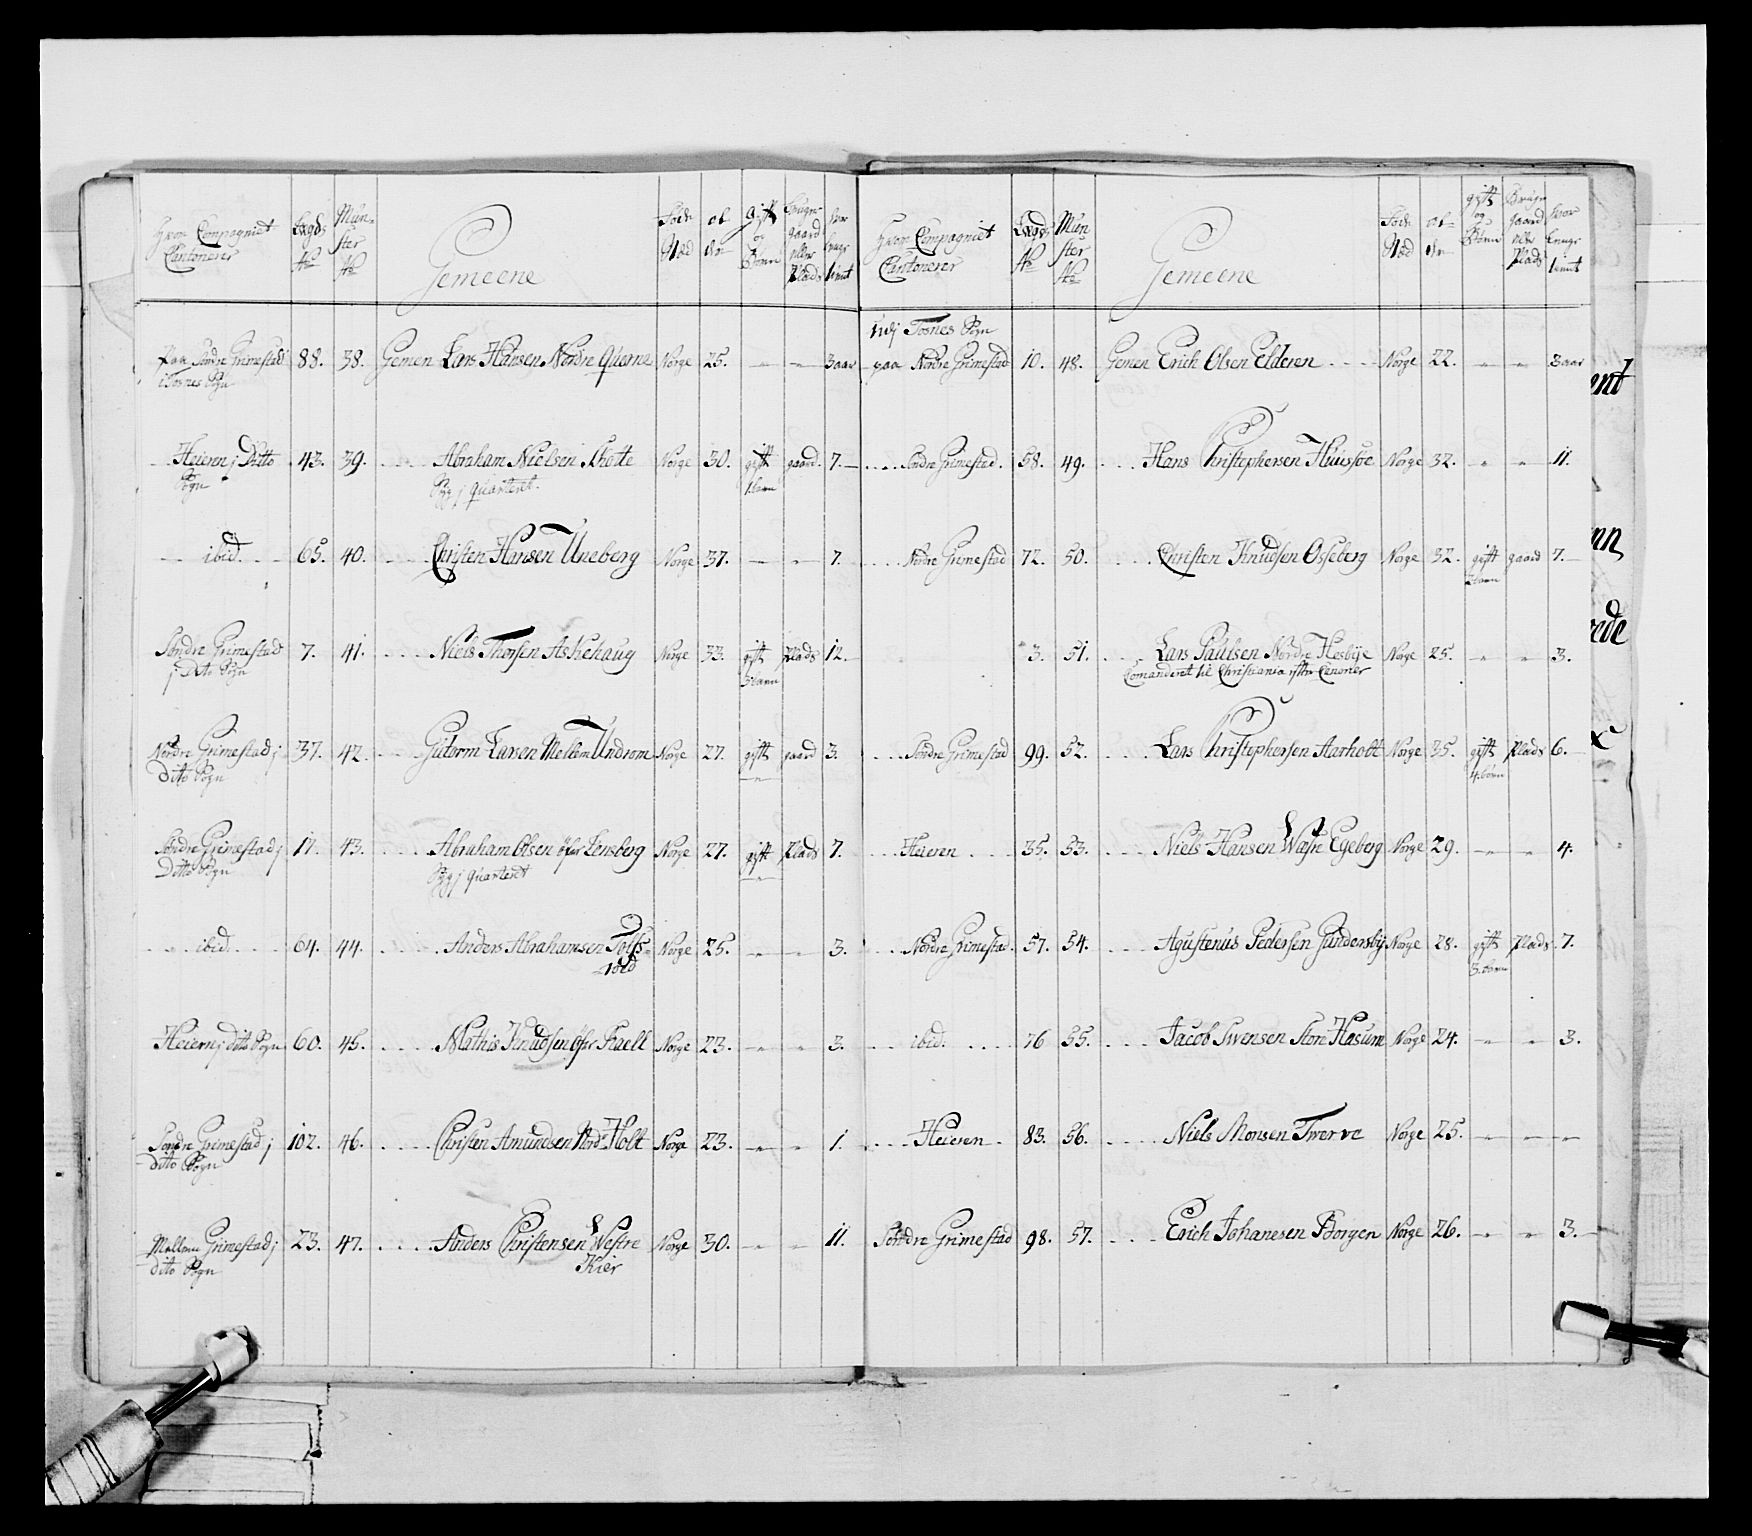 Hvor Compagniet Cantonerer | Lægds No | Mönster No | Gemeene | Föde Stæd | al der | Gift og Børn | Bruger gaard eller Plads | hvor længe tient
Paa Søndre Grimestad i Tosnes Sogn | 88. | 38. | Gemen Lars Hansen Nordre Querne | Norge | 25. | - | - | 3 aar
Heieren j Ditto Sogn | 43. | 39. | Abraham Nielsen Skotte | Norge | 30. | gift 1 barn | gaard. | 7.
Syg j quarteret.
ibid. | 65. | 40. | Christen Hansen Uneberg | Norge | 37. | - | - | 7.
Søndre Grimestad j Dito Sogn | 7. | 41. | Niels Thorsen Askehaug | Norge | 33. | gift 3 barn | Plads | 12.
Nordre Grimestad j dito Sogn | 37. | 42. | Gutorm Larsen Mellem Undrom | Norge | 27. | gift - | gaard | 3.
Søndre Grimestad j Ditto Sogn | 17. | 43. | Abraham Olsen öfre Lensberg | Norge | 27. | gift - | Plads | 7.
Syg j quarteret
ibid. | 64. | 44. | Anders Abrahamsen | Norge | 25. | - | - | 3.
Heieren j dito Sogn | 60. | 45. | Mathis Knudsen öfre Raell | Norge | 23. | - | - | 3.
Søndre Grimestad j dito Sogn | 102. | 46. | Christen Amundsen Nord-Holt | Norge | 23. | - | - | 1.
Mellem Grimestad j dito Sogn | 23. | 47. | Anders Christensen Westre Kier | Norge | 30. | - | - | 11.
Hvor Compagniet Cantonerer | Lægds No | Mönster No | Gemeene | Föde Stæd | al der | gift og Börn | Bruger gaard eller Plads | hvor længe tient
udj Tosnes Sogn
paa Nordre Grimestad | 10. | 48. | Gemen Erich Olsen Elderen | Norge | 22. | - | - | 3 aar
Søndre Grimestad. | 58. | 49. | Hans Christophersen Huusöe | Norge | 32. | - | - | 11.
Nordre Grimestad | 72. | 50. | Christen Knudsen Osseberg | Norge | 32. | gift 2 barn | gaard | 7.
3. | 51. | Lars Paulsen Nordre Heslye | Norge | 25. | - | - | 3.
Comanderet til Christiania efter Canoner
Søndre Grimestad | 99. | 52. | Lars Christophersen Aarholt | Norge | 35. | gift 4. börn | Plads | 6.
Heieren | 35. | 53. | Niels Hansen Egeberg | Norge | 29. | - | - | 4.
Nordre Grimestad. | 57. | 54. | Agustenus Pedersen Gundersby | Norge | 28. | gift 3. barn | Plads | 7.
ibid. | 76 | 55. | Jacob Swensen Store Hasum | Norge | 24. | - | - | 3.
Heieren | 83. | 56. | Niels Monsen Twerve | Norge | 25. | - | - | -
Söndre Grimestad | 98. | 57. | Erich Johanesen Borgen | Norge | 26. | - | - | 3.